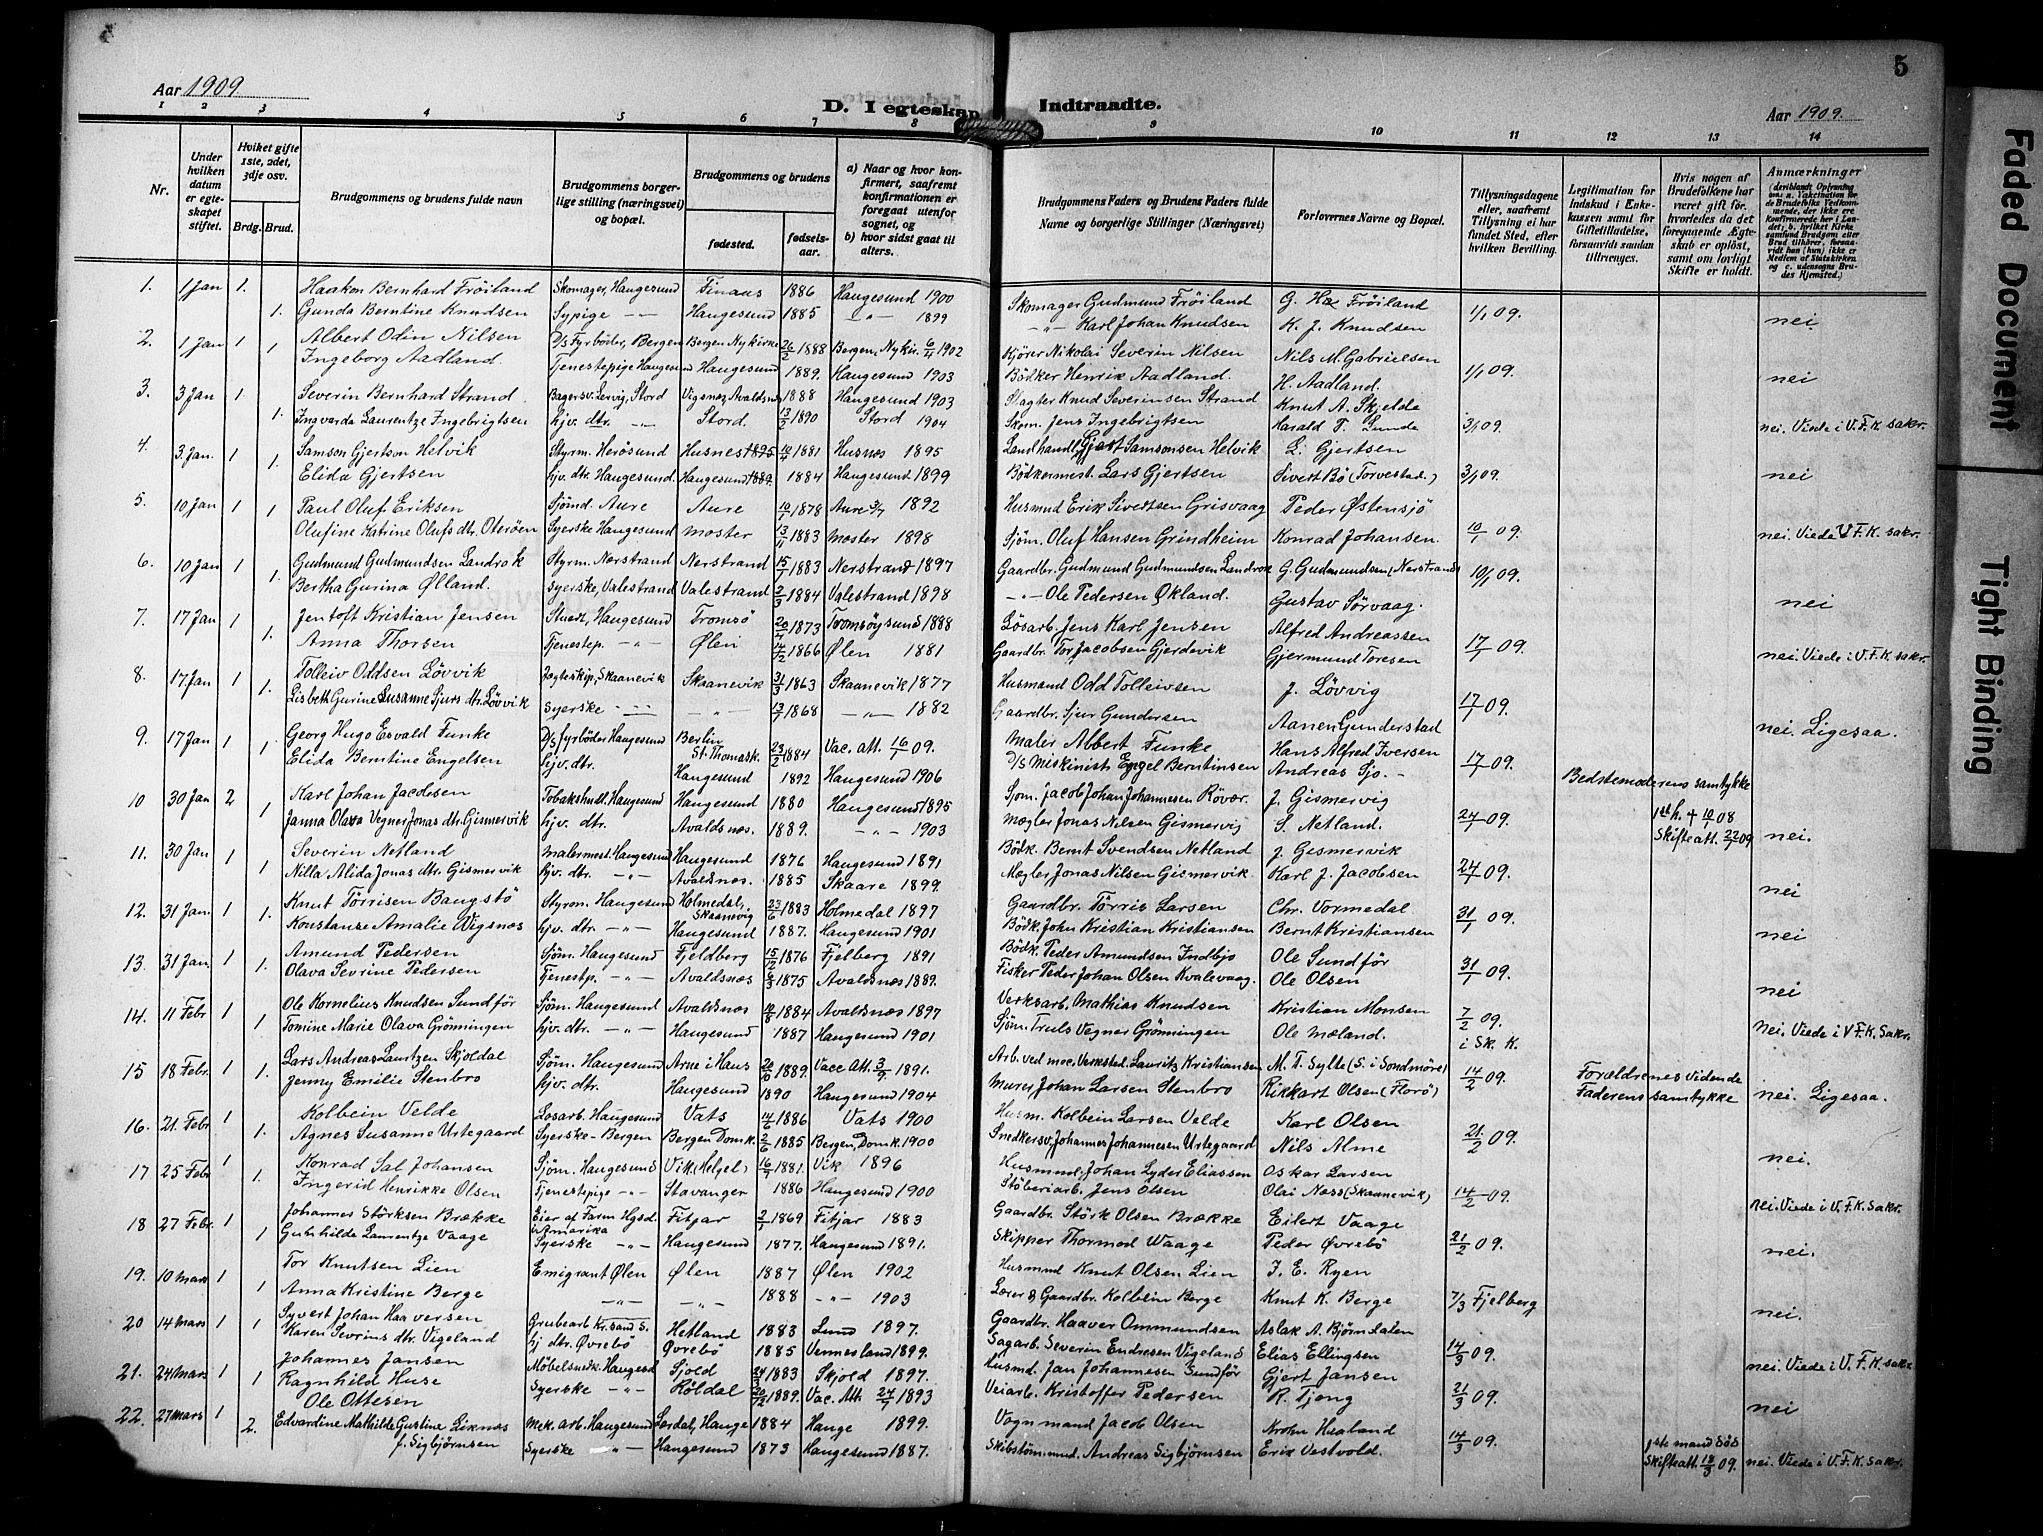 5
Aar 1909.
D. I egteskap Indtraadte.
Aar 1909.
1 2 3 4 5 6 7 8 9 10 11 12 13 14
Nr.
Under hvilken datum er egteskapet stiftet.
Hviket gifte 1ste, 2det, 3dje osv.
Brdg. Brud.
Brudgommens og brudens fulde navn
Brudgommens borgerlige stilling (næringsvei) og bopæl.
Brudgommens og brudens
fødested.
fødselsaar.
a) Naar og hvor konfirmert, saafremt konfirmationen er foregaat utenfor sognet, og
b) hvor sidst gaat til alters.
Brudgommens Faders og Brudens Faders fulde Navne og borgerlige Stillinger (Næringsvei)
Forlovernes Navne og Bopæl.
Tillysningsdagene eller, saafremt Tillysning ei har fundet Sted, efter hvilken Bevilling.
Legitimation for Indskud i Enkekassen samt for Giftetilladelse, forsaavidt saadan tiltrænges.
Hvis nogen af Brudefolkene har været gift før, hvorledes da det foregaaende Ægteskab er opløst, samt om lovligt Skifte er holdt.
Anmærkninger
1. 1 Jan 1. Haakon Bernhard Fröiland Skomager, Haugesund Finaas 1886 Haugesund 1900 Skomager Gudmund Fröiland G. Fröiland 1/1 09.
1. Gunda Berntine Knudsen Sypige -"- Haugesund 1885 -"- 1899 -"- Karl Johan Knudsen K. J. Knudsen nei
2. 1 Jan 1 Albert Odin Nilsen D/S Fyrböder, Bergen Bergen Nykirke 26/2 1888 Bergen, Nykir. 6/4 1902 Kjörer Nikolai Severin Nilsen Nils M. Gabrielsen 1/1 09.
Ingeborg Aadland. Tjenestepige Haugesund Haugesund 1889. Haugesund 1903 Bödker Henrik Aadland. H. Aadland. nei
3. 3 Jan 1 Severin Bernhard Strand. Bagersv. Lervig, Stord Vigsnæs, Avaldsnes 1888 Haugesund 1903 Slagter Knud Severinsen Strand Knut A. Skjelde 3/1 09.
1. Ingvarda Laurentze Ingebrigtsen hjv. dtr. -"- Stord. 13/2 1890 Stord 1904 Skom. Jens Ingebrigtsen Harald T. Lunde nei. Viede i V.F.K. sakr.
4. 3 Jan. 1 Samson Gjertson Helvik Styrm. Herøsund Husnes 1881 Husnæs 1895 Landhandl. Gjert Samsonsen Helvik L. Gjertsen 3/1 09.
1. Elida Gjertsen hjv. dtr. Haugesund. Haugesund 1884 Haugesund 1899 Bödkermest. Lars Gjertsen Sivert Bö (Torvestad.) nei
5. 10 Jan 1 Paul Oluf Eriksen Sjömd. Aure Aure 10/1 1878 Aure 1892 Husmnd Erik Sivertsen Grisvaag Peder Østensjö 10/1 09.
1 Olufine Katrine Olufs dtr. Oteröen Syerske Haugesund Moster 13/11 1883 Moster 1898 Sjöm. Oluf Hansen Grindheim Konrad Johansen. nei. Viede V.F.K. sakr.
6. 10 Jan 1 Gudmund Gudmundsen Landrok Styrm. Nerstrand Nerstrand 15/1 1883 Nerstrand 1897 Gaardbr. Gudmund Gudmundsen Landrok G. Gudmundsen (Nerstrand) 10/1 09.
1. Bertha Gurina Ølland. Syerske, Valestrand Valestrand 2/3 1884 Valestrand 1898 -"- Ole Pedersen Økland. Gustav Sörvaag. nei
7. 17 Jan 1 Jentoft Kristian Jensen Stuert, Haugesund Tromsö 20/4 1873 Tromsöysund 1888 Lösarb. Jens Karl Jensen Alfred Andreassen 17/1 09.
1. Anna Thorsen Tjenestep. -"- Ølen 14/2 1866 Ølen 1881 Gaardbr. Tor Jacobsen Gjerdevik Gjermund Toresen nei. Viede i V.F.K. sakr.
8. 17 Jan 1 Tolleiv Oddsen Lövvik Jægteskip, Skaanevik Skaanevik 31/3 1863 Skaanevik 1877 Husmand Odd Tolleivsen J. Lövvig 17/1 09.
1. Lisbeth Gurine Susanne Sjurs dtr. Lövvik Syerske -"- -"- 13/1 1868 -"- 1882 Gaardbr. Sjur Gundersen Aanen Gunderstad nei. Ligesaa.
9. 17 Jan 1 Georg Hugo Esvald Funke D/S fyrböder Haugesund Berlin St. Thomask. 23/2 1884 Vac. Att. 16/1 09. Maler Albert Funke Hans Alfred Iversen 17/1 09.
1 Elida Berntine Engelsen hjv. dtr. Haugesund 1892 Haugesund 1906 D/S Maskinist Engel Berntinsen Andreas Sjo. - Bedstemoderens samtykke
10 30 Jan 2 Karl Johan Jacobsen Tobakshndl. Haugesund Haugesund 1880 Haugesund 1895 Sjöm. Jacob Johan Johannesen Rövær. J. Gismervig 24/1 09. 1st h. + 10/1 08
1 Janna Olava Vegner Jonas dtr. Gismervik hjv. dtr. Avaldsnæs. 1889. -"- 1903 Mægler Jonas Nilsen Gismervig S. Netland. Skifteatt. 22/1 09 nei.
11. 30 Jan 1 Severin Netland Malermest. Haugesund Haugesund 1876 Haugesund 1891 Bödk. Bernt Svendsen Netland J. Gismervik 24/1 09.
1 Nilla Alida Jonas dtr. Gismervik hjv. dtr. -"- Avaldsnæs. 1885 Skaare 1899. Mægler Jonas Nilsen Gismervik Karl J. Jacobsen nei
12. 31 Jan. 1 Knut Törrisen Baugstö Styrm. Haugesund Holmedal, Skaanevig 23/6 1883 Holmedal 1897 Gaardbr. Törris Larsen Chr. Vormedal 31/1 09.
1. Konstanse Amalie Vigsnæs hjv. dtr. -"- Haugesund 1887. Haugesund 1901 Bödk. John Kristian Kristiansen Bernt Kristiansen nei
13. 31 Jan. 1 Amund Pedersen Sjöm. Haugesund Fjeldberg 15/2 1876 Fjelberg 1891 Bödk. Peder Amundsen Indbjo Ole Sundför 31/1 09.
1. Olava Sevrine Pedersen Tjenestp. -"- Avaldsnæs 1875 Avaldsnæs 1889. Fisker Peder Johan Olsen Kvalevaag. Ole Olsen nei
14. 11 Febr 1 Ole Kornelius Knudsen Sundför Sjöm. Haugesund Avaldsnæs 10/8 1884 Avaldsnæs 1897 Verksarb. Mathias Knudsen Kristian Monsen 7/2 09.
1 Tomine Marie Olava Grönningen hjv. dtr. -"- Haugesund 1887 Haugesund 1901 Sjöm. Truls Vegner Grönningen Ole Mæland. i Sk. K. nei. Viede i V.F.K. sakr.
15 18 Febr. 1 Lars Andreas Lauritzen Skjoldal Sjöm. Haugesund Arne i Haus 20/6 1889. Vacc Att. 3/9 1891. Arb. ved mec. Verksted. Lauritz Kristiansen M. T. Sylte (S. i Söndmöre) 14/2 09. Forældrenes vidende
1. Jenny Emilie Stenbro hjv. dtr. Haugesund 1890 Haugesund 1904 Murer Johan Larsen Stenbro Rikkart Olsen (Florö) Faderens samtykke nei. Ligesaa.
16. 21 Febr 1 Kolbein Velde Losarb. Haugesund Vats 14/6 1886 Vats 1900 Husm. Kolbein Larsen Velde Karl Olsen 21/2 09.
1. Agnes Susanne Urtegaard Syerske - Bergen Bergen Domk. 2/6 1885 Bergen, Domk. 1900 Snedkersv. Johannes Johannesen Urtegaard Nils Alme nei.
17 25 Febr 1 Konrad Sal. Johansen Sjöm. Haugesund Vik (Helgel) 16/4 1881. Vik 1896 Husmnd. Johan Lyder Eliassen Oskar Larsen 14/2 09.
1. Ingerid Henrikke Olsen Tjenestepige -"- Stavanger 1886 Haugesund 1900 Stöberiarb. Jens Olsen Olai Næss (Skaanevik) nei. Viede i V.F.K. sakr.
18 27 Febr. 1 Johannes Störksen Brække Eier af Farm Hgsd. i Amarika Fitjar 2/1 1869 Fitjar 1883 Gaardbr. Störk Olsen Brække Eilert Vaage 21/2 09.
1 Gunhilde Laurentze Vaage Syerske -"- Haugesund 1877. Haugesund 1891. Skipper Thormod Waage Peder Øvrebö nei.
19. 10 mars 1 Tor Knutsen Lien Emigrant Ølen Ølen 1887 Ølen 1902 Husmnd Knut Olsen Lien I. E. Ryen 7/3 Fjelberg
1 Anna Kristine Berge -"- -"- 1888 -"- 1903 Lærer & Gaardbr. Kolbein Berge Knut K. Berge nei.
20 14 mars 1 Syvert Johan Haaversen Grubearb Kr.sand S. Hetland 1883 Lund 1897. Gaardbr. Haaver Ommundsen Aslak A. Björnslaten 14/3 09.
1 Karen Sevrins dtr. Vigeland hj dtr. Øvrebö Øvrebö 1885 Vennesland 1899. Sagarb. Severin Endresen Vigeland Elias Ellingsen nei. Viede i V.F.K. sakr
21. 24 mars. 1 Johannes Jansen Möbelsnedk. Haugesd Sjold 1883 Skjold 1897. Husmd. Jan Johannesen Sundför Gjert Jansen 21/3 09.
1 Ragnhild Huse Syerske -"- Röldal 20/12 1889. Vac. Att. 1893 Veiarb. Kristoffer Pedersen R. Tjong nei
22. 27 mars 1 Ole Ottesen Mek. arb. Haugesund Lærdal, Hauge 1884 Hauge 1899. Vognmand Jacob Olsen Haaland 14/3 09. 1ste mand död
2. Edvardine Mathilde Gustine Liknæs f. Sigbjörnsen Syerske -"- Haugesund 1873 Haugesund 1887. Skibstömmmd. Andreas Sigbjörnsen Erik Vestvold. Skifteatt. 12/3 09. nei. Viede i V.F.K. sakr.
Faded Document
Tight Binding